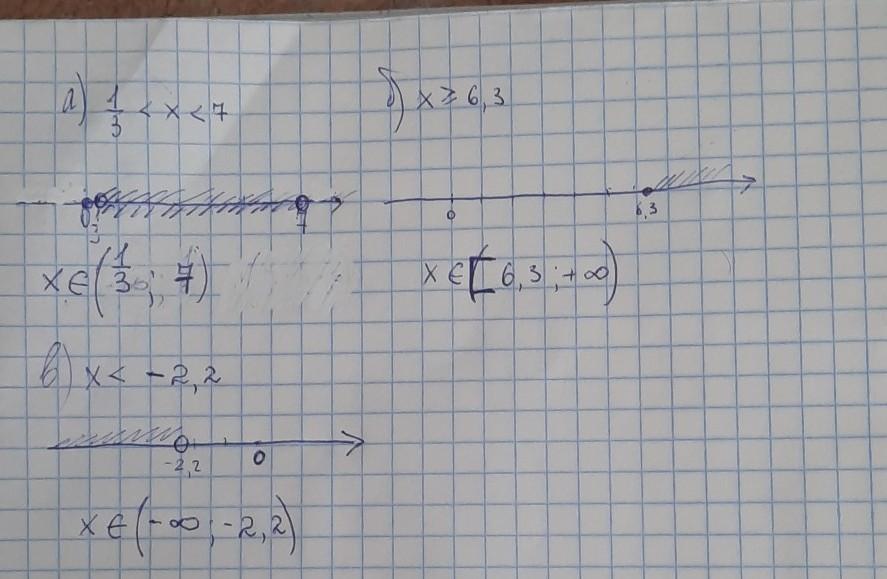 а) 1/3 < x < 7
0 1/3 7
x ∈ (1/3 ; 7)
б) x ≥ 6,3
0 6,3
x ∈ [6,3 ; +∞)
в) x < -2,2
-2,2 0
x ∈ (-∞ ; -2,2)